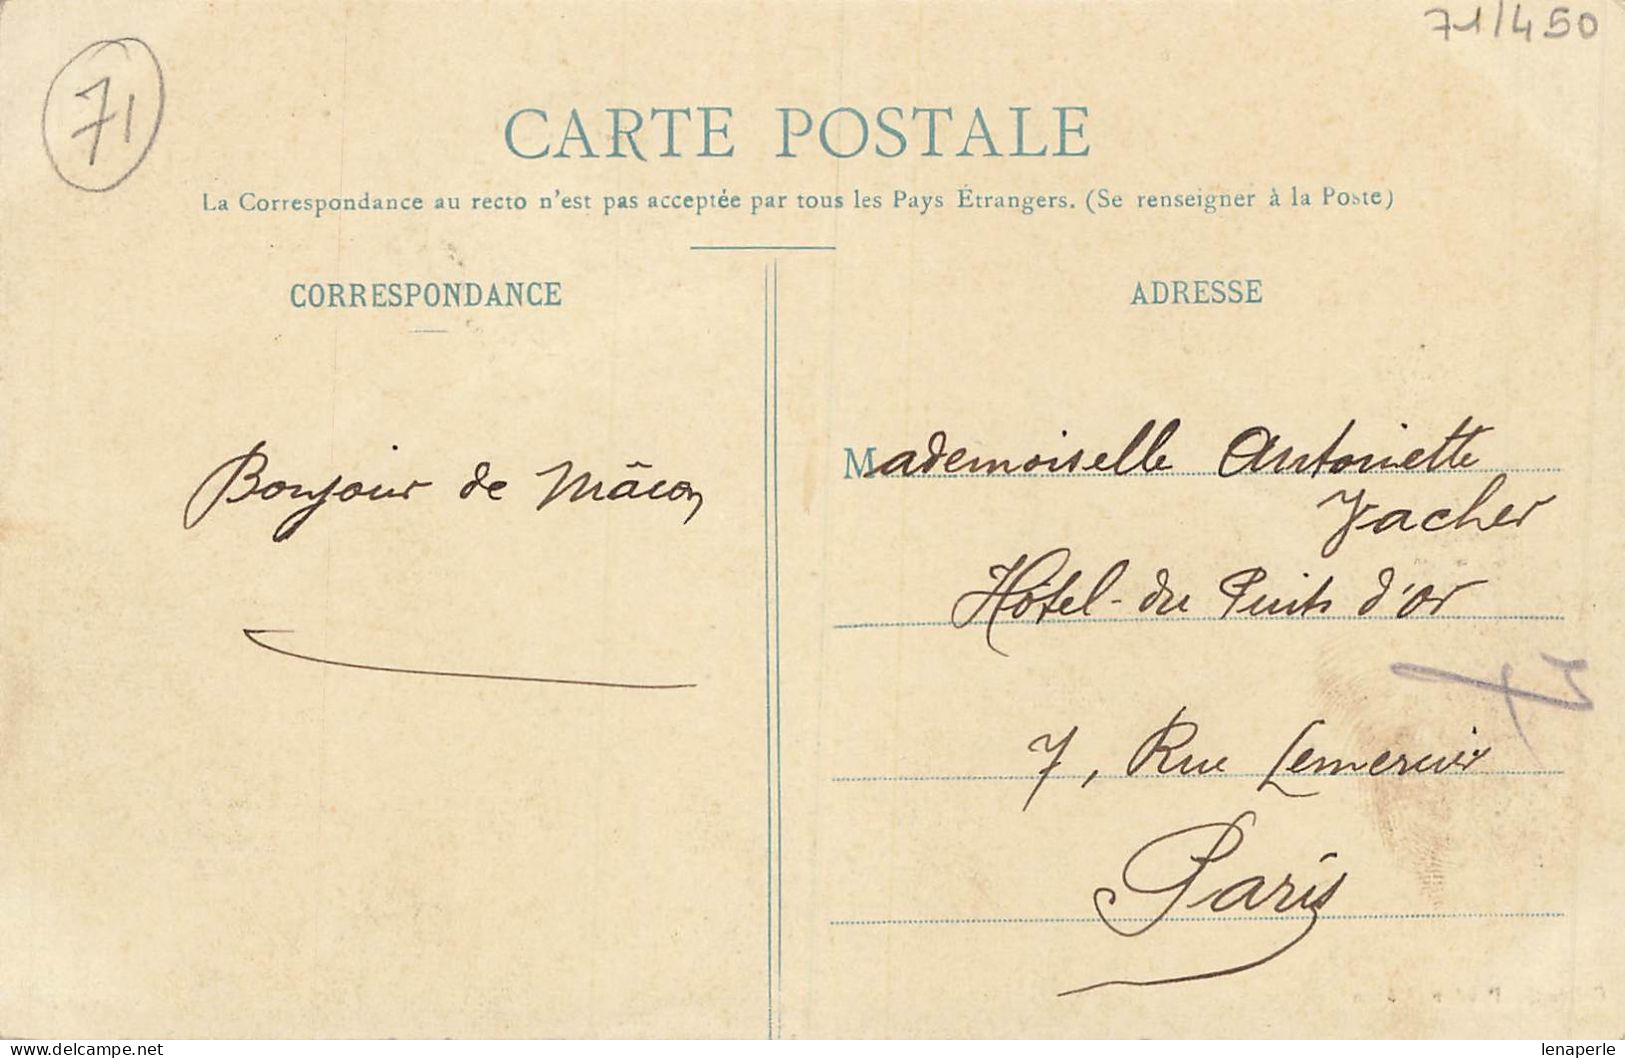 71/450
71
CARTE POSTALE
La Correspondance au recto n'est pas acceptée par tous les Pays Étrangers. (Se renseigner à la Poste)
CORRESPONDANCE
Bonjour de Mâcon
ADRESSE
Mademoiselle Antoinette
Vacher
Hôtel-du Puits d'or
7, Rue Lemercier
Paris
delcampe.net
lenaperle